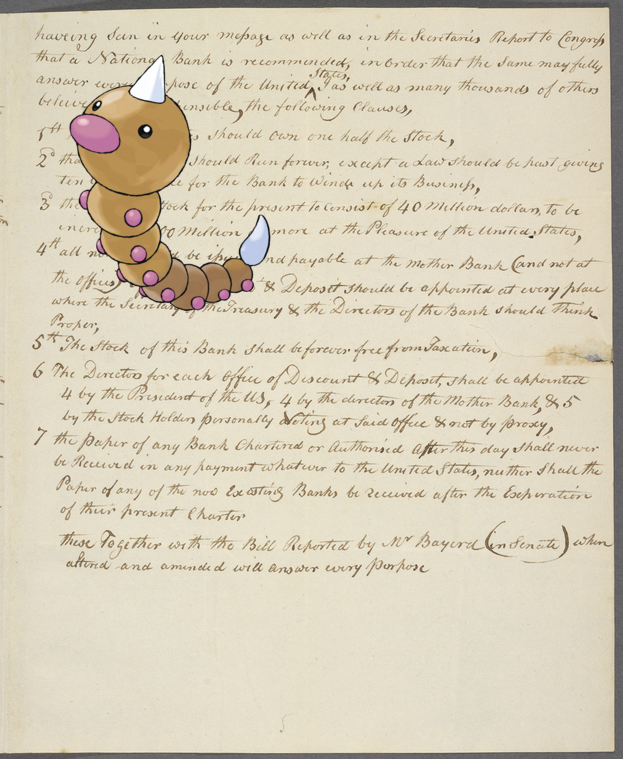 haveing Seen in your message as well as in the Secretaries Report to Congress
that a National Bank is recommended, in order that the Same may fully
answer every pose of the United States, as well as many thousands of others
believe ensible, the following Clauses,
1st s should own one half the Stock,
2d tha should Run forever, except a Law should be past giving
ten for the Bank to Winde up its Business,
3d the tock for the present to Consist of 40 Million dollars, to be
incre 00 Million more at the Pleasure of the United States,
4th all no d be ipu and payable at the Mother Bank (and not at
the offices & Deposit should be appointed at every place
where the Secretary of the Treasury & the Directors of the Bank should Think
Proper,
5th The Stock of this Bank shall be forever free from Taxation,
6 The Directors for each office of Discount & Deposit, shall be appointed
4 by the President of the US, 4 by the directors of the Mother Bank, & 5
by the Stock Holders personally Voting at Said office & not by proxy,
7 the paper of any Bank Chartered or Authorised After this day shall never
be Received in any payment whatever to the United States, neither shall the
Paper of any of the now Existing Banks be received after the Experation
of their present Charter
these Together with the Bill Reported by Mr Bayerd (in Senate) when
altered and amended will answer every porpose